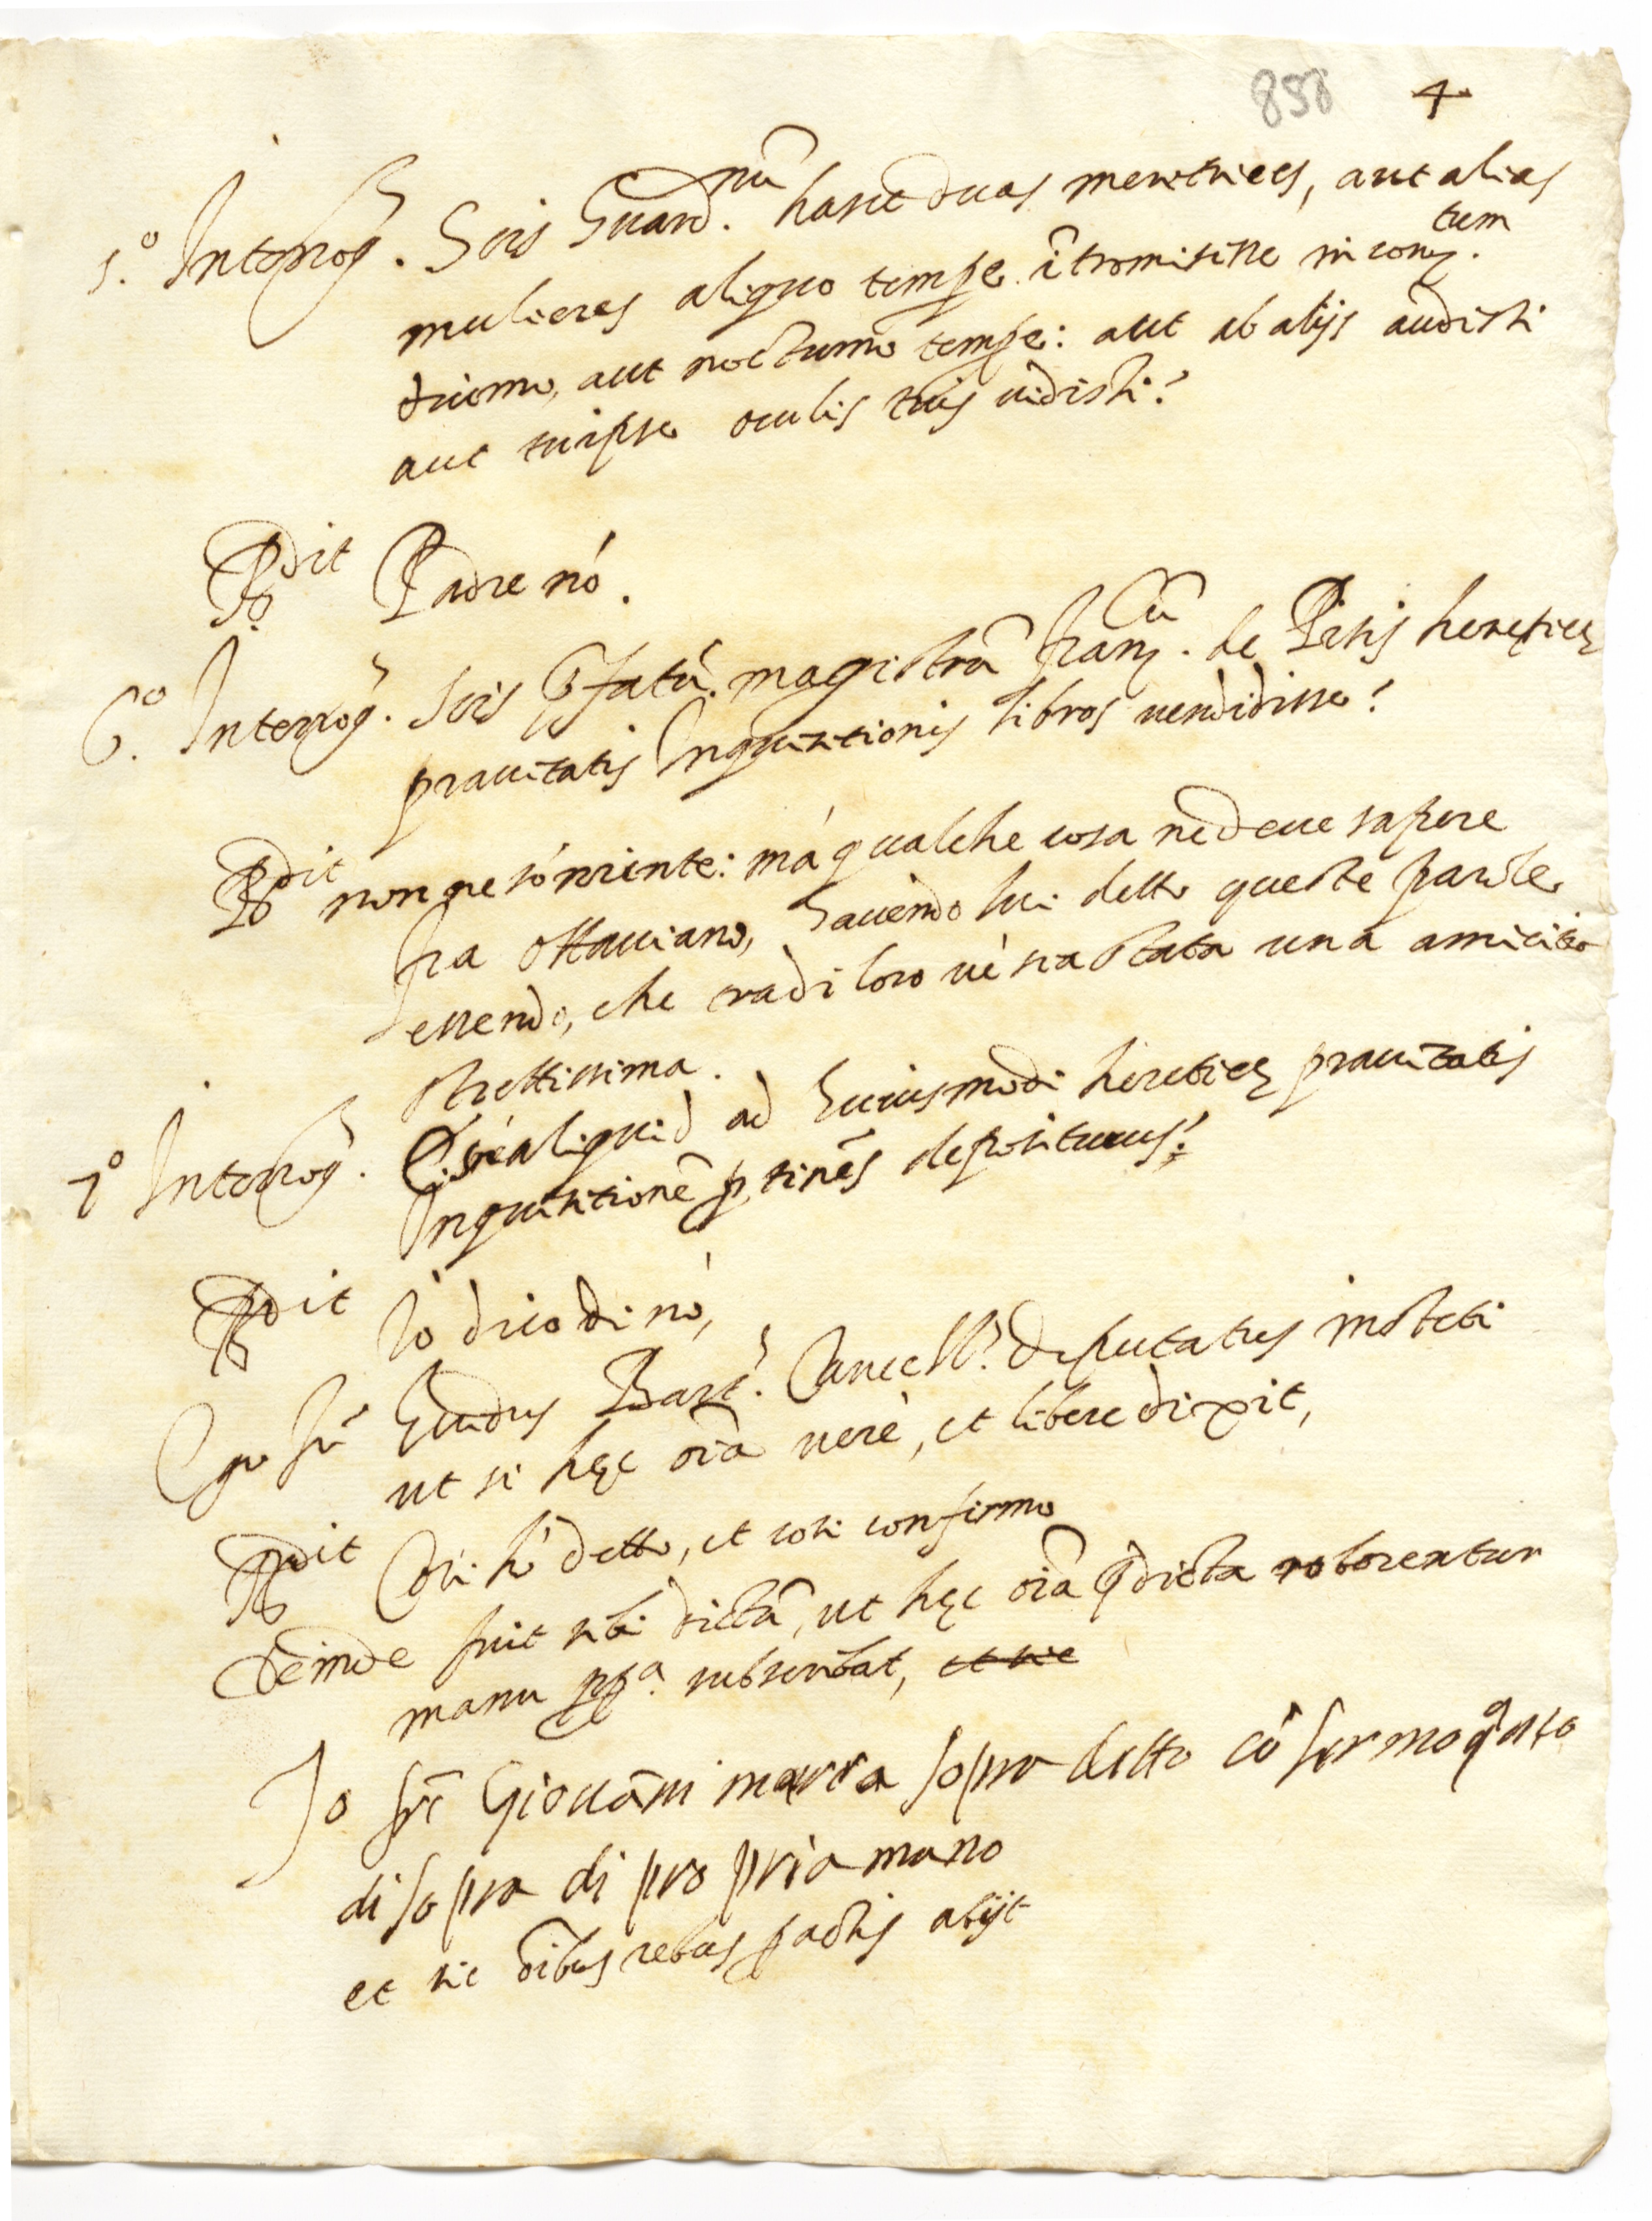 858 4
5.º Interrog. Scis Guard.nũ hasce duas meretrices, aut alias
mulieres aliquo tempe ĩtromisisse in conv.tum
diurno, aut nocturno tempe: aut ab alijs audisti
aut tuipse oculis tuis vidisti?
Rdit Padre nó.
6.º Interrog. Scis p̃fatũ magistrũ Franc.cũ de Pisis hereticę
pravitatis Inquisitionis libros vendidisse?
Rdit non ne só niente: má qualche cosa ne deve sapere
fra Ottaviano, havendo lui detto queste parole
essendo, che tra di loro vè sia stata una amicitia
strettissima.
7º Interrog. aliquid ad huiusmodi hereticę pravitatis
Inquisitionẽ ptinẽs depositurus?
Rdit Io dico di nó,
Ego fr̃ Guidus Bart. Cancell.s deputatus institi
ut si hęc oĩa verè, et libere dixit,
Rdit Cosi hó detto, et cosi confirmo
Deinde fuit sibi dictũ, ut hęc oĩa p̃dicta roborentur
manu pp.a subscribat, et sic
Io frẽ Giovãni maria sopra detto cõfermo q̃nto
di sopra di propria mano
et sic õibus rebus pactis abijt